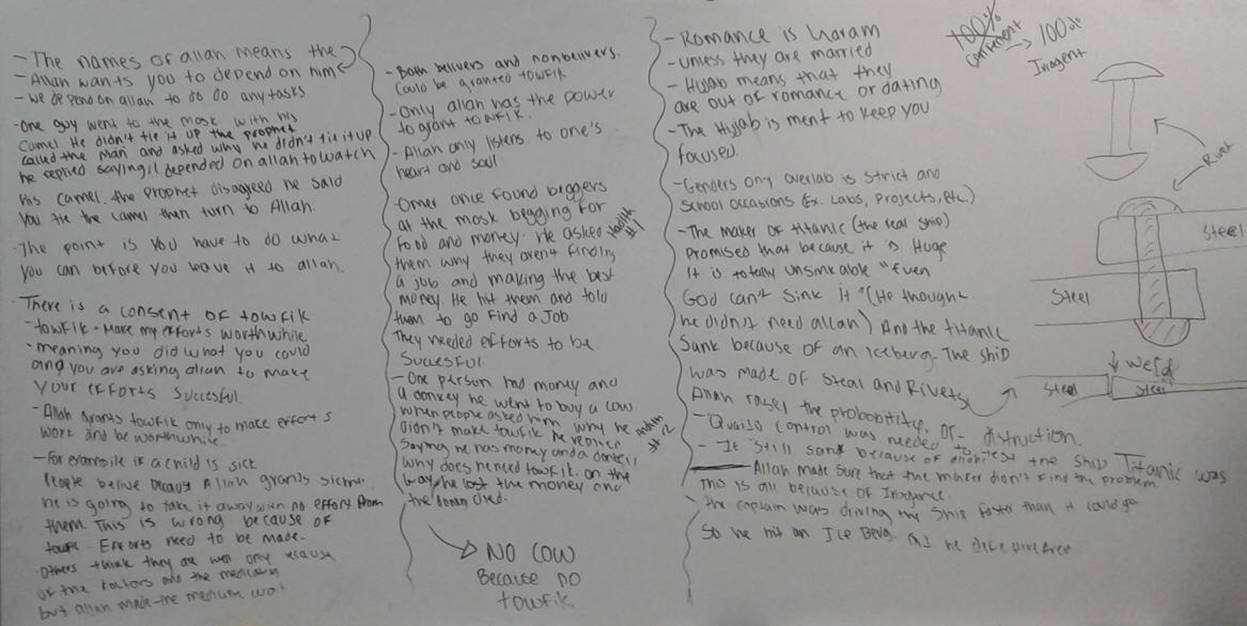 - The names of allah means the
- Allah wants you to depend on him
- we depend on allah to do do any tasks
- one guy went to the mosk with his
camel. He didn't tie it up the prophet
called the man and asked why he didn't tie it up
he replied saying, I depended on allah to watch
his camel. the prophet disagreed he said
You tie the camel then turn to Allah.
- The point is you have to do what
you can before you leave it to allah.
There is a consent of towfik
- towfik - Make my efforts worthwhile
- meaning you did what you could
and you are asking allah to make
your efforts succesful.
- Allah grants towfik only to make efforts
work and be worthwhile.
- For example if a child is sick
people belive because Allah grants
he is going to take it away with no effort from
them. This is wrong because of
Efforts need to be made.
others think they are well only because
of the and the
but allah made the
- Both belivers and nonbelivers.
could be granted towfik
- Only allah has the power
to grant towfik.
- Allah only listens to one's
heart and soul
- Omer once found beggers
at the mosk begging for
food and money. He asked
them why they arent finding
a job and making the best
money. He hit them and told
them to go find a job
They needed efforts to be
Succesful.
Hadith #1
- One person had money and
a donkey he went to buy a cow
when people asked him why he
didn't make towfik he
saying he has money and a donkey
why does he need towfik. on the
way he lost the money and
the died.
#2
NO COW
Because no
towfik
- Romance is haram
- Unless they are married
- Hijab means that they
are out of romance or dating
- The Hijab is ment to keep you
focused.
- Genders only overlab is strict and
school occasions (Ex. Labs, Projects, etc)
- The maker of titanic (the real ship)
Promised that because it is Huge
It is totally unsinkable "Even
God can't sink it" (He thought
he didn't need allah) And the titanic
Sank because of an Iceberg. The ship
was made of Steal and Rivets,
Allah the of distruction.
- control was needed to
- It still sank because of the ship Titanic was
- Allah made sure that the maker didn't find the problem
This is all because of
The captain was driving the ship faster than it could go
So he hit an Ice
100%
→ 100%
Rivet
Steel
Steel
Weld
Steel
Steel